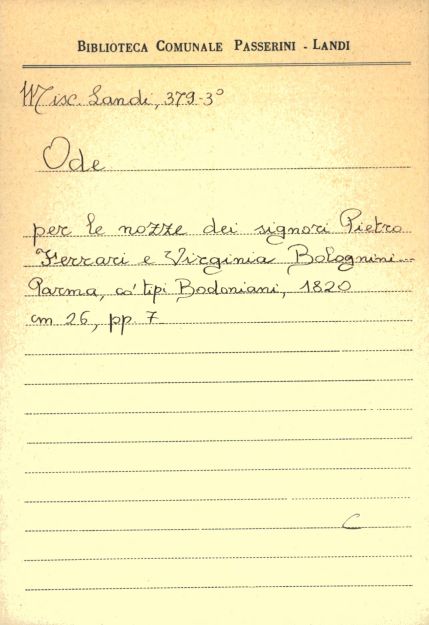 BIBLIOTECA COMUNALE PASSERINI - LANDI
Misc. Landi, 379-3°
Ode
per le nozze dei signori Pietro
Ferrari e Virginia Bolognini.-
Parma, co' tipi Bodoniani, 1820
cm 26, pp. 7
C